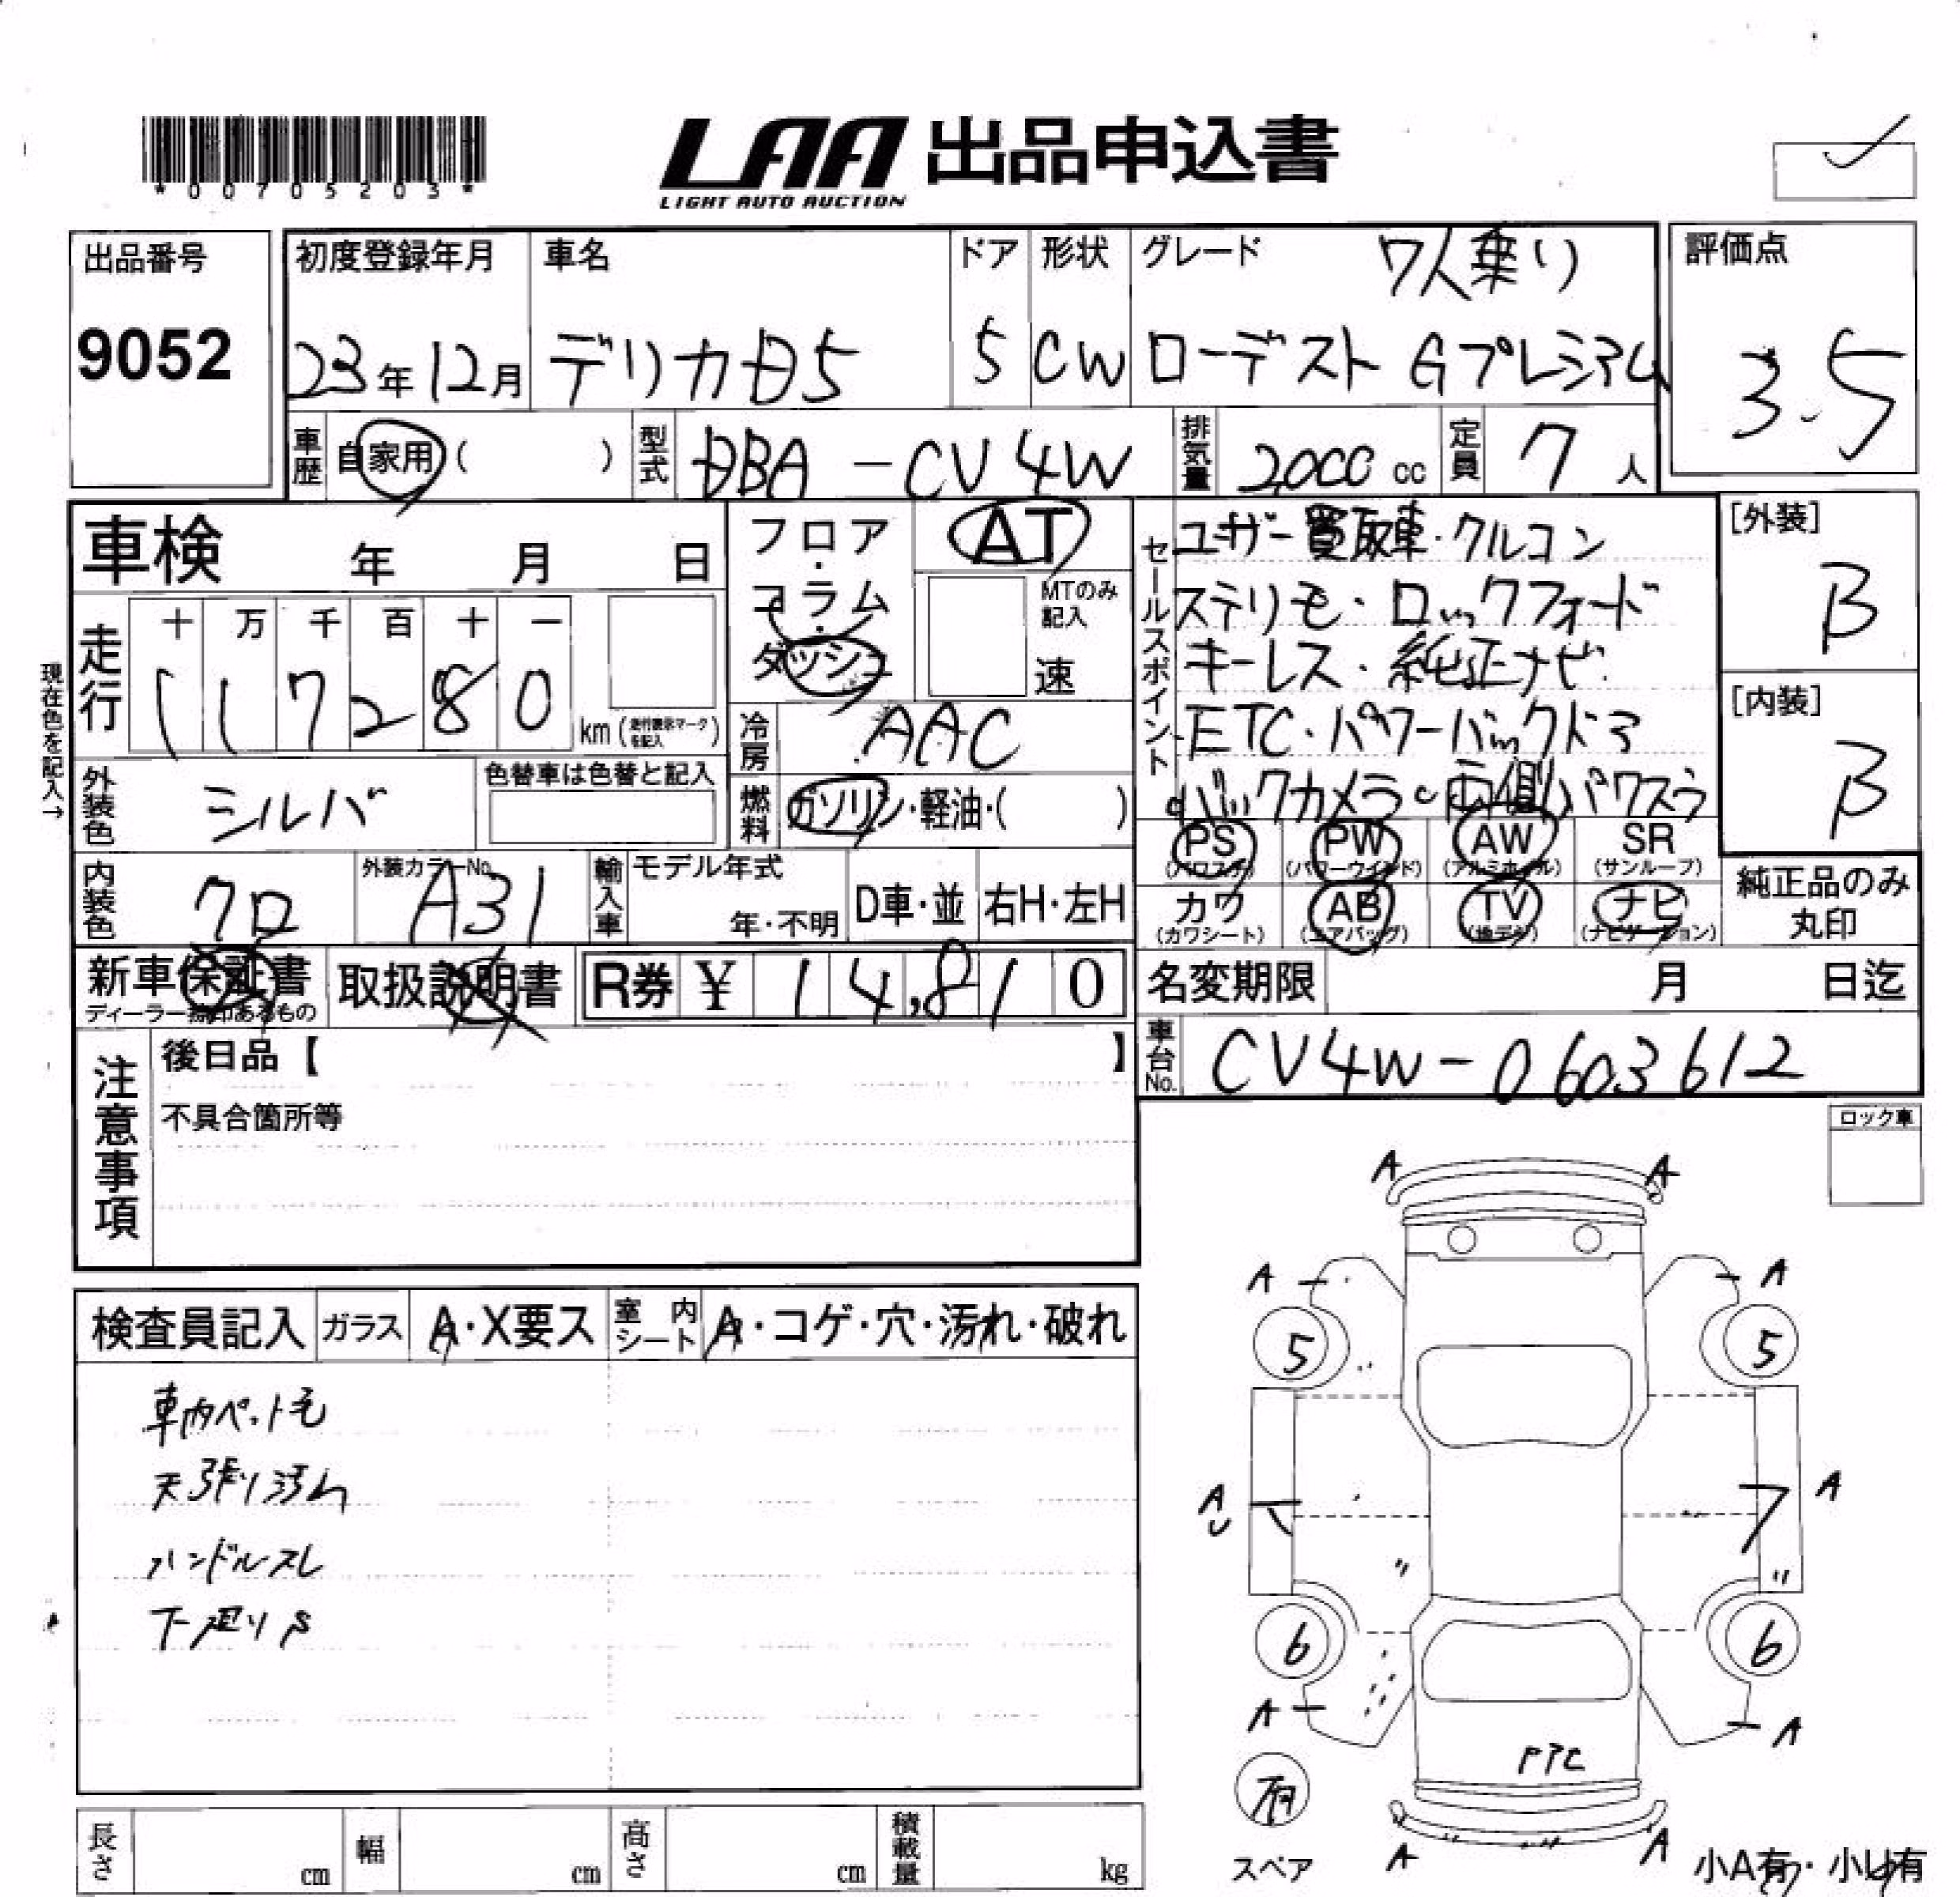 *00705203*
LAA 出品申込書
LIGHT AUTO AUCTION
出品番号
9052
初度登録年月
23年12月
車名
デリカD5
ドア
5
形状
CW
グレード 7人乗り
ローデスト Gプレミアム
評価点
3.5
車歴 自家用( )
型式 DBA-CV4W
排気量 2,000cc
定員 7人
車検 年 月 日
現在色を記入→
走行
十 万 千 百 十 一
1 1 7 2 8 0 km
フロア・コラム・ダッシュ
AT
MTのみ記入
速
冷房 AAC
燃料 ガソリン・軽油・( )
外装色 シルバ
色替車は色替と記入
内装色 クロ
外装カラーNo. A31
輸入車
モデル年式
年・不明
D車・並
右H・左H
セールスポイント
ユーザー買取車・クルコン
ステリモ・ロックフォード
キーレス・純正ナビ・
ETC・パワーバックドア
バックカメラ・両側パワスラ
[外装]
B
[内装]
B
PS (パワステ)
PW (パワーウインド)
AW (アルミホイル)
SR (サンルーフ)
カワ (カワシート)
AB (エアバッグ)
TV (地デジ)
ナビ (ナビゲーション)
純正品のみ丸印
新車保証書
取扱説明書
R券 ¥ 14,810
名変期限 月 日迄
車台No. CV4W-0603612
注意事項
後日品【 】
不具合箇所等
ロック車
検査員記入
ガラス A・X要ス
室内シート A・コゲ・穴・汚れ・破れ
車内ペット毛
天張り汚れ
ハンドルスレ
下廻りS
A A
A A
5 5
A A
6 6
A A
有
スペア
A A
小A有・小U有
長さ cm
幅 cm
高さ cm
積載量 kg